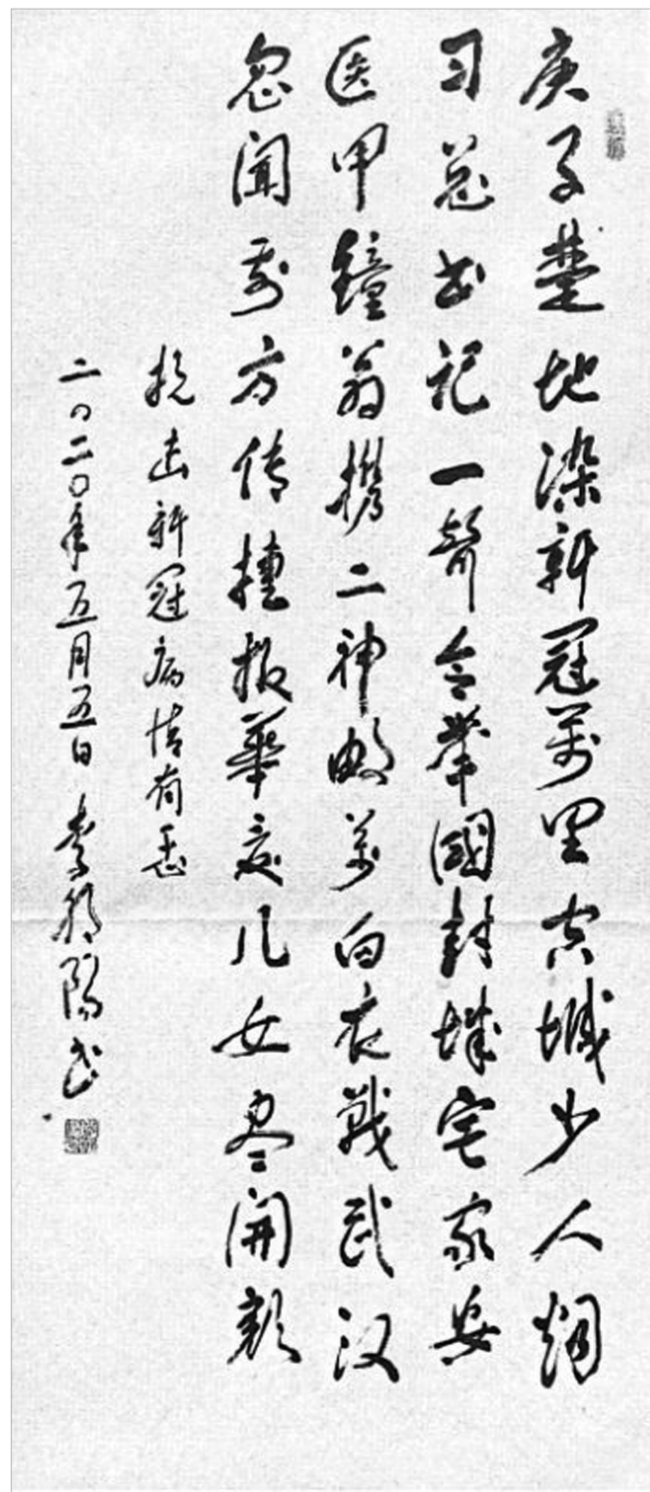 庚子楚地染新冠萬里空城少人烟
习总书记一声令举國封城宅家安
医甲鐘翁携二神数萬白衣戰武汉
忽闻前方传捷报華夏儿女尽開颜
抗击新冠病情有感
二〇二〇年五月五日 李陽书